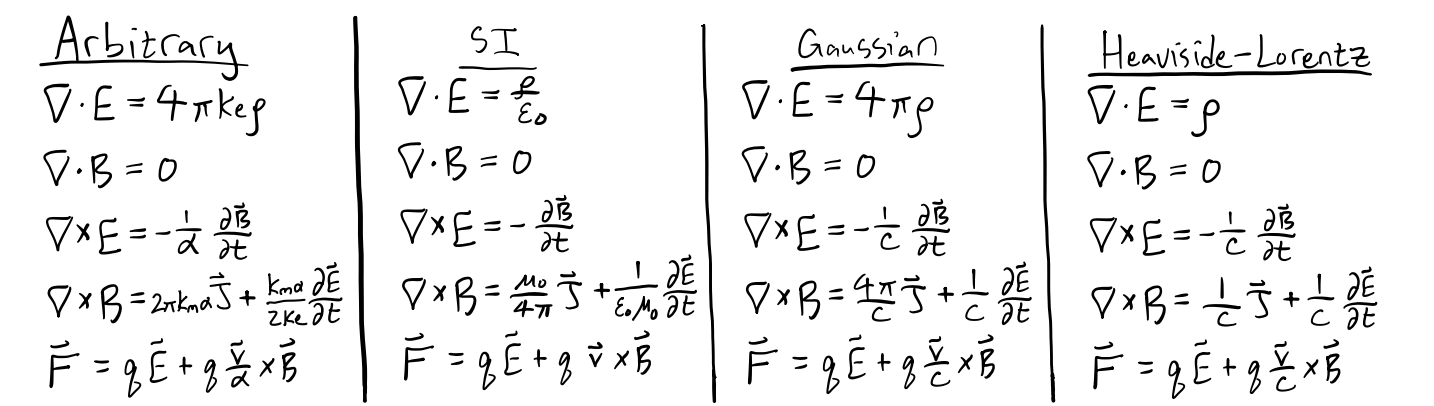 Arbitrary
∇·E = 4πkeρ
∇·B = 0
∇×E = -1/α ∂B⃗/∂t
∇×B = 2πkmαJ⃗ + kmα/2ke ∂E⃗/∂t
F⃗ = qE⃗ + q v⃗/α × B⃗
SI
∇·E = ρ/ε₀
∇·B = 0
∇×E = -∂B⃗/∂t
∇×B = μ₀/4π J⃗ + 1/ε₀μ₀ ∂E⃗/∂t
F⃗ = qE⃗ + q v⃗ × B⃗
Gaussian
∇·E = 4πρ
∇·B = 0
∇×E = -1/c ∂B⃗/∂t
∇×B = 4π/c J⃗ + 1/c ∂E⃗/∂t
F⃗ = qE⃗ + q v⃗/c × B⃗
Heaviside-Lorentz
∇·E = ρ
∇·B = 0
∇×E = -1/c ∂B⃗/∂t
∇×B = 1/c J⃗ + 1/c ∂E⃗/∂t
F⃗ = qE⃗ + q v⃗/c × B⃗